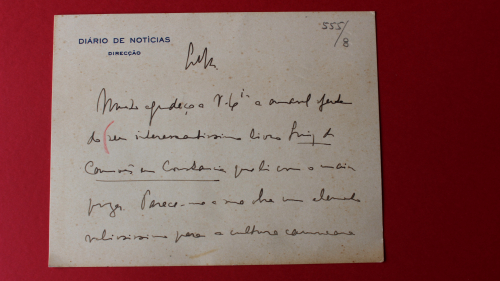 DIÁRIO DE NOTÍCIAS
DIRECÇÃO
555/8
Muito agradeço a V. a amavel oferta
do seu interessantissimo livro Luiz de
Camões em Constancia que li com o maior
prazer. Parece-me a obra um elemento
valiosissimo para a cultura camoneana